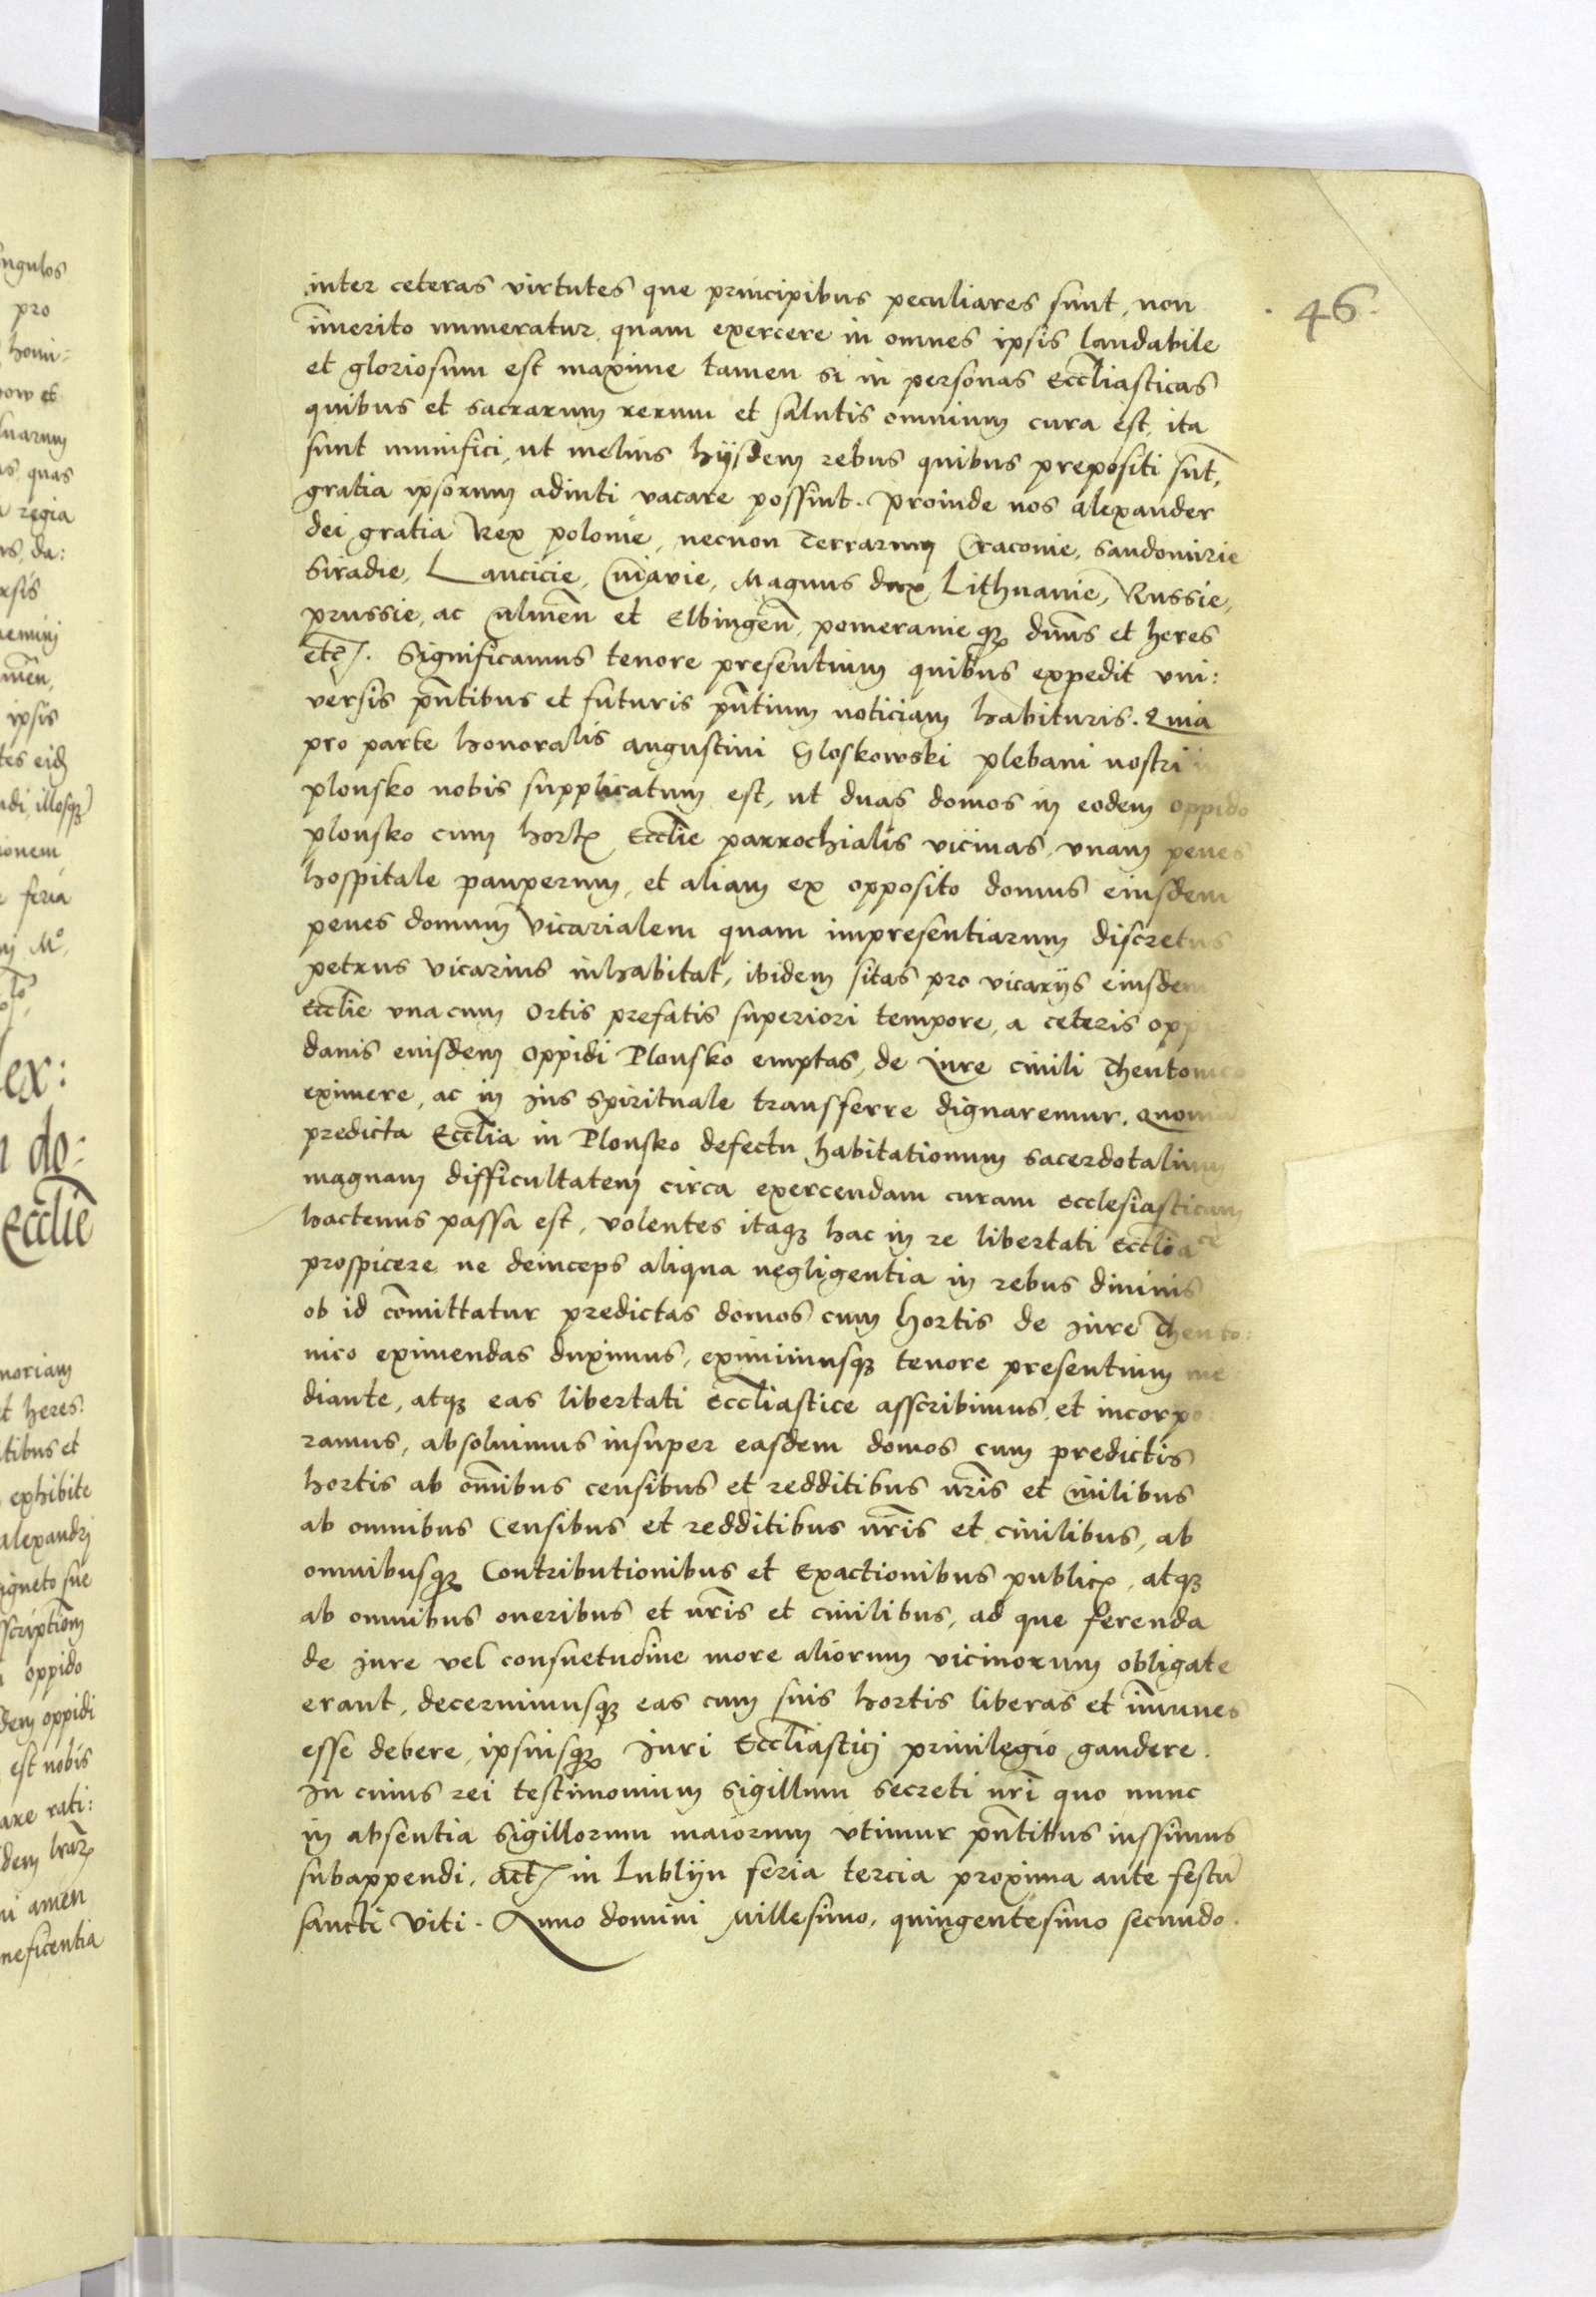 46
inter ceteras virtutes que principibus peculiares sunt, non
im̄erito numeratur, quam exercere in omnes ipsis laudabile
et gloriosum est maxime tamen si in personas eccl̄iasticas
quibus et sacrarum rerum et salutis omnium cura est, ita
sunt munifici, ut melius hijsdem rebus quibus prepositi sūt,
gratia ipsorum adiuti vacare possint. Proinde nos alexander
dei gratia Rex polonie, necnon Terrarum Cracouie, Sandomirie
Siradie, Lancicie, Cuiavie, Magnus dux Lithuanie, Russie,
prussie, ac Culmēn et Elbingēn, pomeranieqꝫ dn̄us et heres
etc̄. Significamus tenore presentium quibus expedit vni:
versis pn̄tibus et futuris pn̄tium noticiam habituris. Quia
pro parte honoralis augustini Gloskowski plebani nostri in
plonsko nobis supplicatum est, ut duas domos in eodem oppido
plonsko cum hortꝭ Eccl̄ie parrochialis vicinas, vnam penes
hospitale pauperum, et aliam ex opposito domus eiusdem
penes domum vicarialem quam impresentiarum discretus
petrus vicarius inhabitat, ibidem sitas pro vicarijs eiusdem
Eccl̄ie vna cum Ortis prefatis superiori tempore, a ceteris oppi
danis eiusdem oppidi Plonsko emptas, de Iure ciuili Theutonico
eximere, ac in ius spirituale transferre dignaremur. Quoniā
predicta Eccl̄ia in Plonsko defectu habitationum sacerdotalium
magnam difficultatem circa exercendam curam ecclesiasticam
hactenus passa est, volentes itaqꝫ hac in re libertati Eccl̄iāce
prospicere ne deinceps aliqua negligentia in rebus diuinis
ob id com̄ittatur predictas domos cum hortis de iure Theuto:
nico eximendas duximus, eximimusqꝫ tenore presentium me
diante, atqꝫ eas libertati eccl̄iastice asscribimus et incorpo:
ramus, absoluimus insuper easdem domos cum predictis
hortis ab om̄ibus censibus et redditibus nr̄is et ciuilibus
ab omnibus Censibus et redditibus nr̄is et ciuilibus, ab
omnibusqꝫ Contributionibus et Exactionibus publicꝭ, atqꝫ
ab omnibus oneribus et nr̄is et ciuilibus, ad que ferenda
de iure vel consuetudine more aliorum vicinorum obligate
erant, decernimusqꝫ eas cum suis hortis liberas et im̄unes
esse debere, ipsiusqꝫ Iuri Eccl̄iastici priuilegio gaudere.
In cuius rei testimonium sigillum secreti nr̄i quo nunc
in absentia sigillorum maiorum vtimur pn̄tibus iussimus
subappendi. Act̄ in Lublijn feria tercia proxima ante festū
sancti Viti. Anno domini Millesimo, quingentesimo secundo.